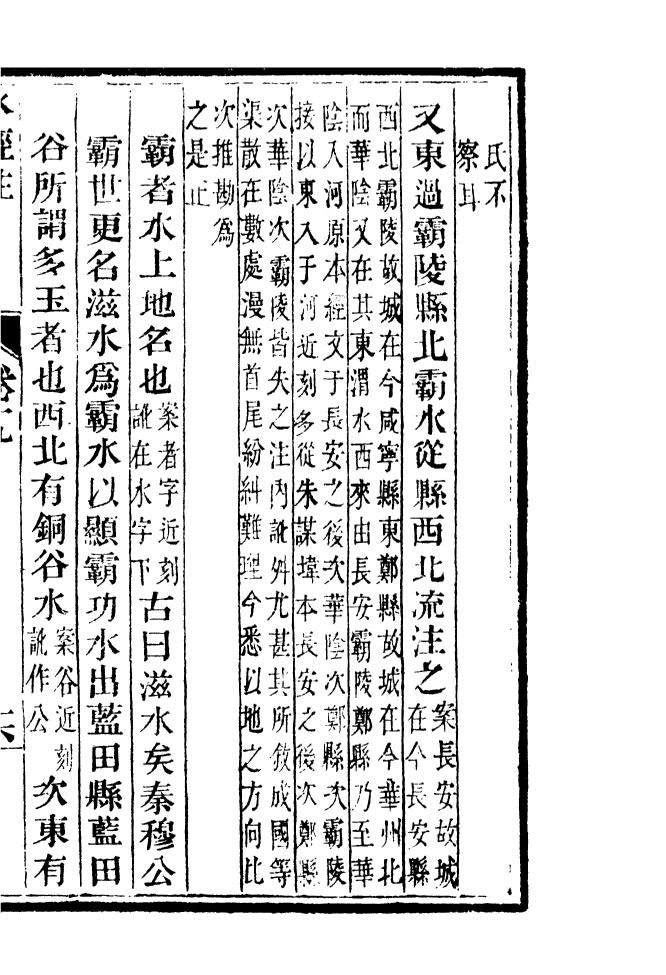 氏不
察耳
又東過霸陵縣北霸水從縣西北流注之案長安故城
在今長安縣
西北霸陵故城在今咸寧縣東鄭縣故城在今華州北
而華陰又在其東渭水西來由長安霸陵鄭縣乃至華
陰入河原本經文于長安之後次華陰次鄭縣次霸陵
接以東入于河近刻多從朱謀㙔本長安之後次鄭縣
次華陰次霸陵皆失之注內訛舛尤甚其所敘成國等
渠散在數處漫無首尾紛糾難理今悉以地之方向比
次推勘爲
之是正
霸者水上地名也案者字近刻
訛在水字下古曰滋水矣秦穆公
霸世更名滋水爲霸水以顯霸功水出藍田縣藍田
谷所謂多玉者也西北有銅谷水案谷近刻
訛作公次東有
水經注
卷十九